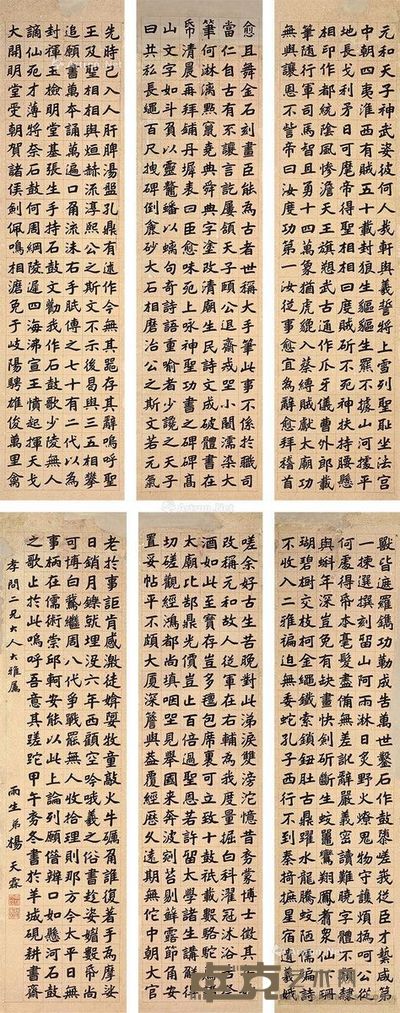 元和天子神武姿彼何人哉軒與羲誓將上雪列聖恥坐法宮
中朝四夷淮西有賊五十載封狼生貙貙生羆不據山河據平
地長戈利矛日可麾帝得聖相相曰度賊斫不死神扶持腰懸
相印作都統陰風慘澹天王旗愬武古通作爪牙儀曹外郎載
筆隨行軍司馬智且勇十四萬衆猶虎貔入蔡縛賊獻太廟功
無與讓恩不訾帝曰汝度功第一汝從事愈宜為辭愈拜稽首
愈且舞金石刻畫臣能為古者世稱大手筆此事不係於職司
當仁自古有不讓言訖屢頷天子頤公退齋戒坐小閣濡染大
筆何淋漓點竄堯典舜典字塗改清廟生民詩文成破體書在
帋清晨再拜鋪丹墀表曰臣愈昧死上詠神聖功書之碑碑高
山文字如斗負以靈鼇蟠以螭句奇語重喻者少讒之天子
曰其私長繩百尺拽碑倒麤砂大石相磨治公之斯文若元氣
先時已入人肝脾湯盤孔鼎有述作今無其器存其辭嗚呼聖
王及聖相相與烜赫流淳熙公之斯文不示後曷與三五相攀
追願書萬本誦萬遍口角流沫右手胝傳之七十有二代以為
封禪玉檢明堂基張生手持石鼓文勸我作石鼓歌少陵無人
謫仙死才薄將奈石鼓何周綱陵遲四海沸宣王憤起揮天戈
大開明堂受朝賀諸侯劍佩鳴相磨蒐于岐陽騁雄俊萬里禽
獸皆遮羅鐫功勒成告萬世鑿石作鼓隳嵯峨從臣才藝咸第
一揀選撰刻留山阿雨淋日炙野火燎鬼物守護煩撝呵公從
何處得帋本毫髮盡備無差訛辭嚴義密讀難曉字體不類隸
與蝌年深豈免有缺畫快劍斫斷生蛟鼉鸞翔鳳翥衆仙下珊
瑚碧樹交枝柯金繩鐵索鎖鈕壯古鼎躍水龍騰梭陋儒編詩
不收入二雅褊迫無委蛇孔子西行不到秦掎摭星宿遺羲娥
嗟余好古生苦晚對此涕淚雙滂沱憶昔初蒙博士徵其年始
改稱元和故人從軍在右輔為我度量掘臼科濯冠沐浴告祭
酒如此至寶存豈多氈包席裹可立致十鼓祇載數駱駝薦諸
太廟比郜鼎光價豈止百倍過聖恩若許留太學諸生講解得
切磋觀經鴻都尚填咽坐見舉國來奔波剜苔剔蘚露節角安
置妥帖平不頗大廈深簷與蓋覆經歷久遠期無佗中朝大官
老於事詎肯感激徒媕婀牧童敲火牛礪角誰復著手為摩挲
日銷月鑠就埋沒六年西顧空吟哦羲之俗書趁姿媚數帋尚
可博白鵝繼周八代爭戰罷無人收拾理則那方今太平日無
事柄任儒術崇邱軻安能以此上論列願借辨口如懸河石鼓
之歌止於此嗚呼吾意其蹉跎甲午冬書於羊城硯耕書齋
孝問二兄大人大雅屬
雨生弟楊天霖